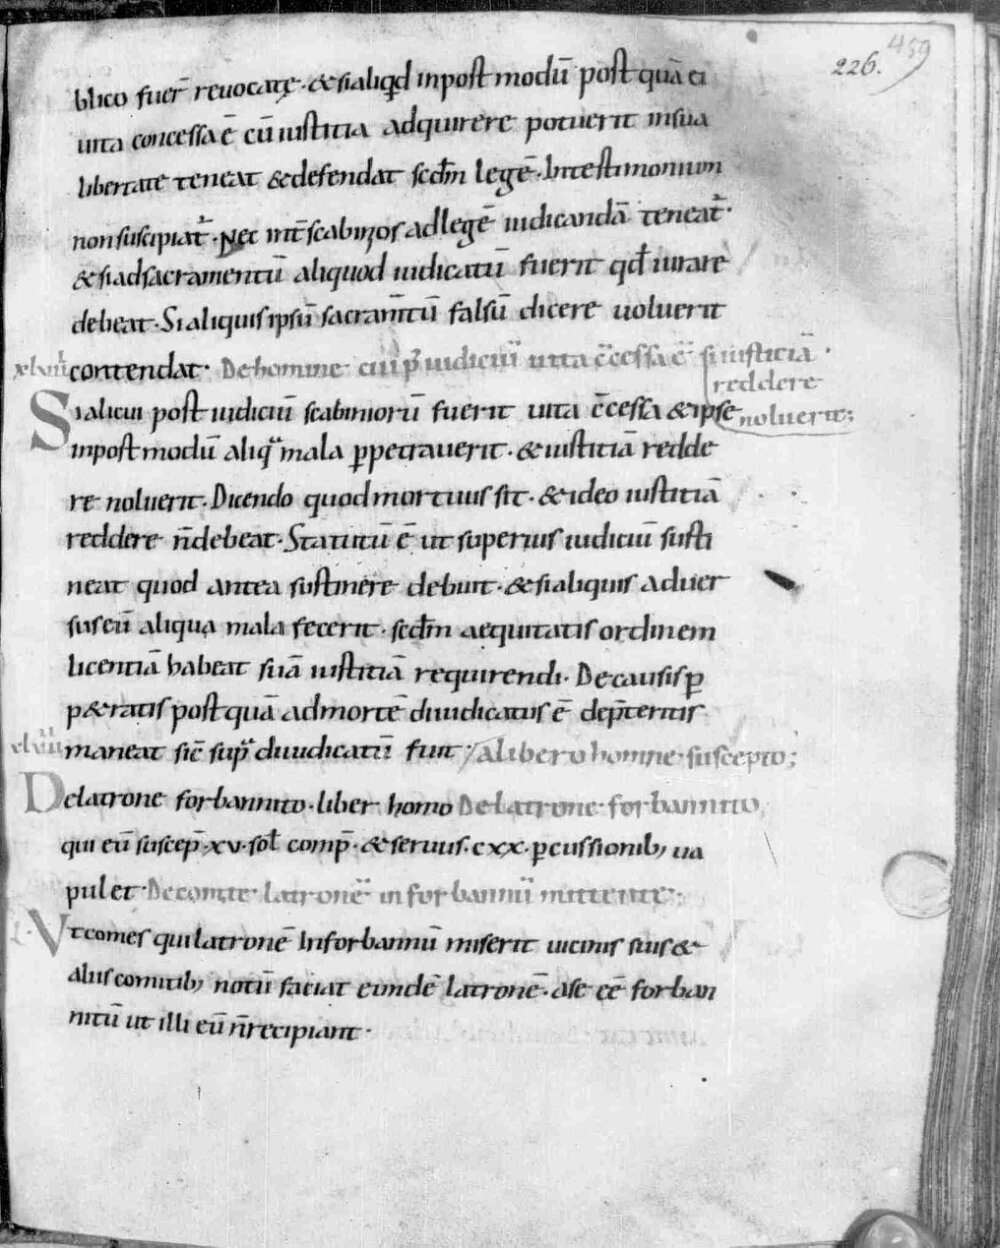 459
226.
blico fuer̄ reuocatę · & si aliqd̄ inpost modū post quā ei
uita concessa ē cū iustitia adquirere potuerit in sua
libertate teneat & defendat scdm̄ legē · In testimonium
non suscipiat᷒ · Nec int̄ scabinos ad legē iudicandā teneat᷒ ·
& si ad sacramentū aliquod iudicatū fuerit qd̄ iurare
debeat · Si aliquis ipsū sacram̄tū falsū dicere uoluerit
xlvii contendat · De homine cui p̄ iudiciū uita c̄cessa ē si iusticiā ·
reddere
Si alicui post iudiciū scabiniorū fuerit uita c̄cessa & ipse noluerit;
inpost modū aliq̄ mala ꝑpetrauerit · & iustitiā redde
re noluerit · Dicendo quod mortuus sit · & ideo iustitiā
reddere n̄ debeat · Statutū ē ut superius iudiciū susti
neat quod antea sustinere debuit · & si aliquis aduer
sus eū aliqua mala fecerit · scdm̄ aequitatis ordinem
licentiā habeat suā iustitiā requirendi · De causis ꝑ
p&ratis postquā ad mortē diiudicatus ē dep̄teritis
xlviii maneat sic̄ sup̄ diiudicatū fuit · / a libero homine · suscepto;
De latrone forbannito · liber homo De latrone · forbannito
qui eū suscep̄ · xv · sol̄ comp̄ · & seruus · cxx · ꝑcussionib; ua
pulet · De comite · latronē in forbannū mittente ·
L · Vt comes qui latronē in forbannū miserit uicinis suis &
aliis comitib; notū faciat eundē latronē · a se eē forban
nitū ut illi eū n̄ recipiant ·